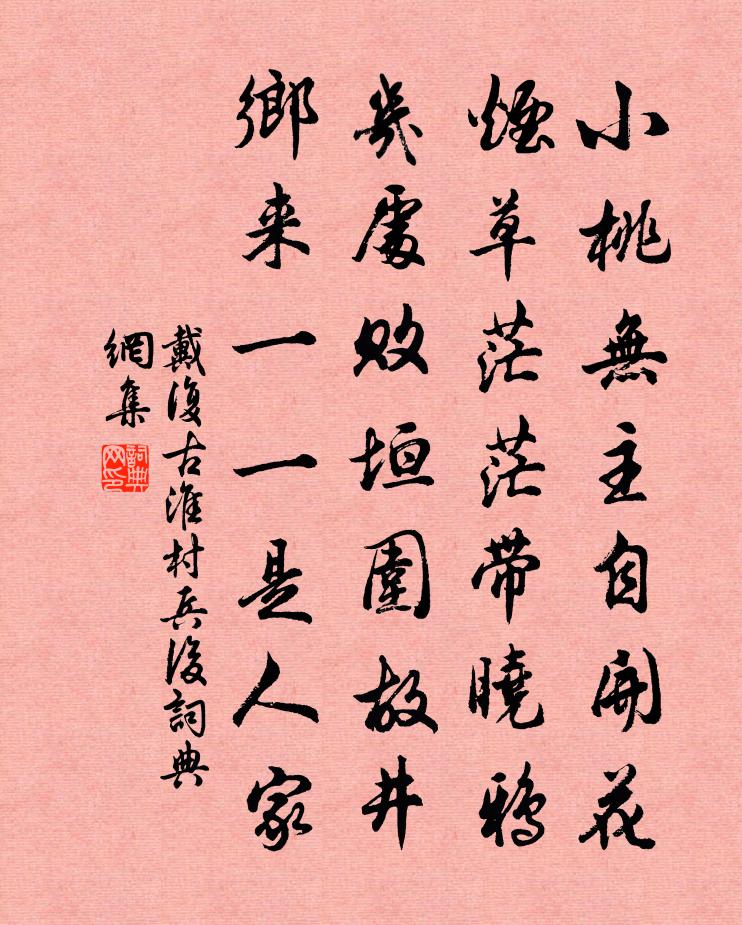 小桃無主自開花
煙草茫茫帶曉鴉
幾處敗垣圍故井
鄉来一一是人家
戴復古淮村兵後詞典
網集
詞典
网印